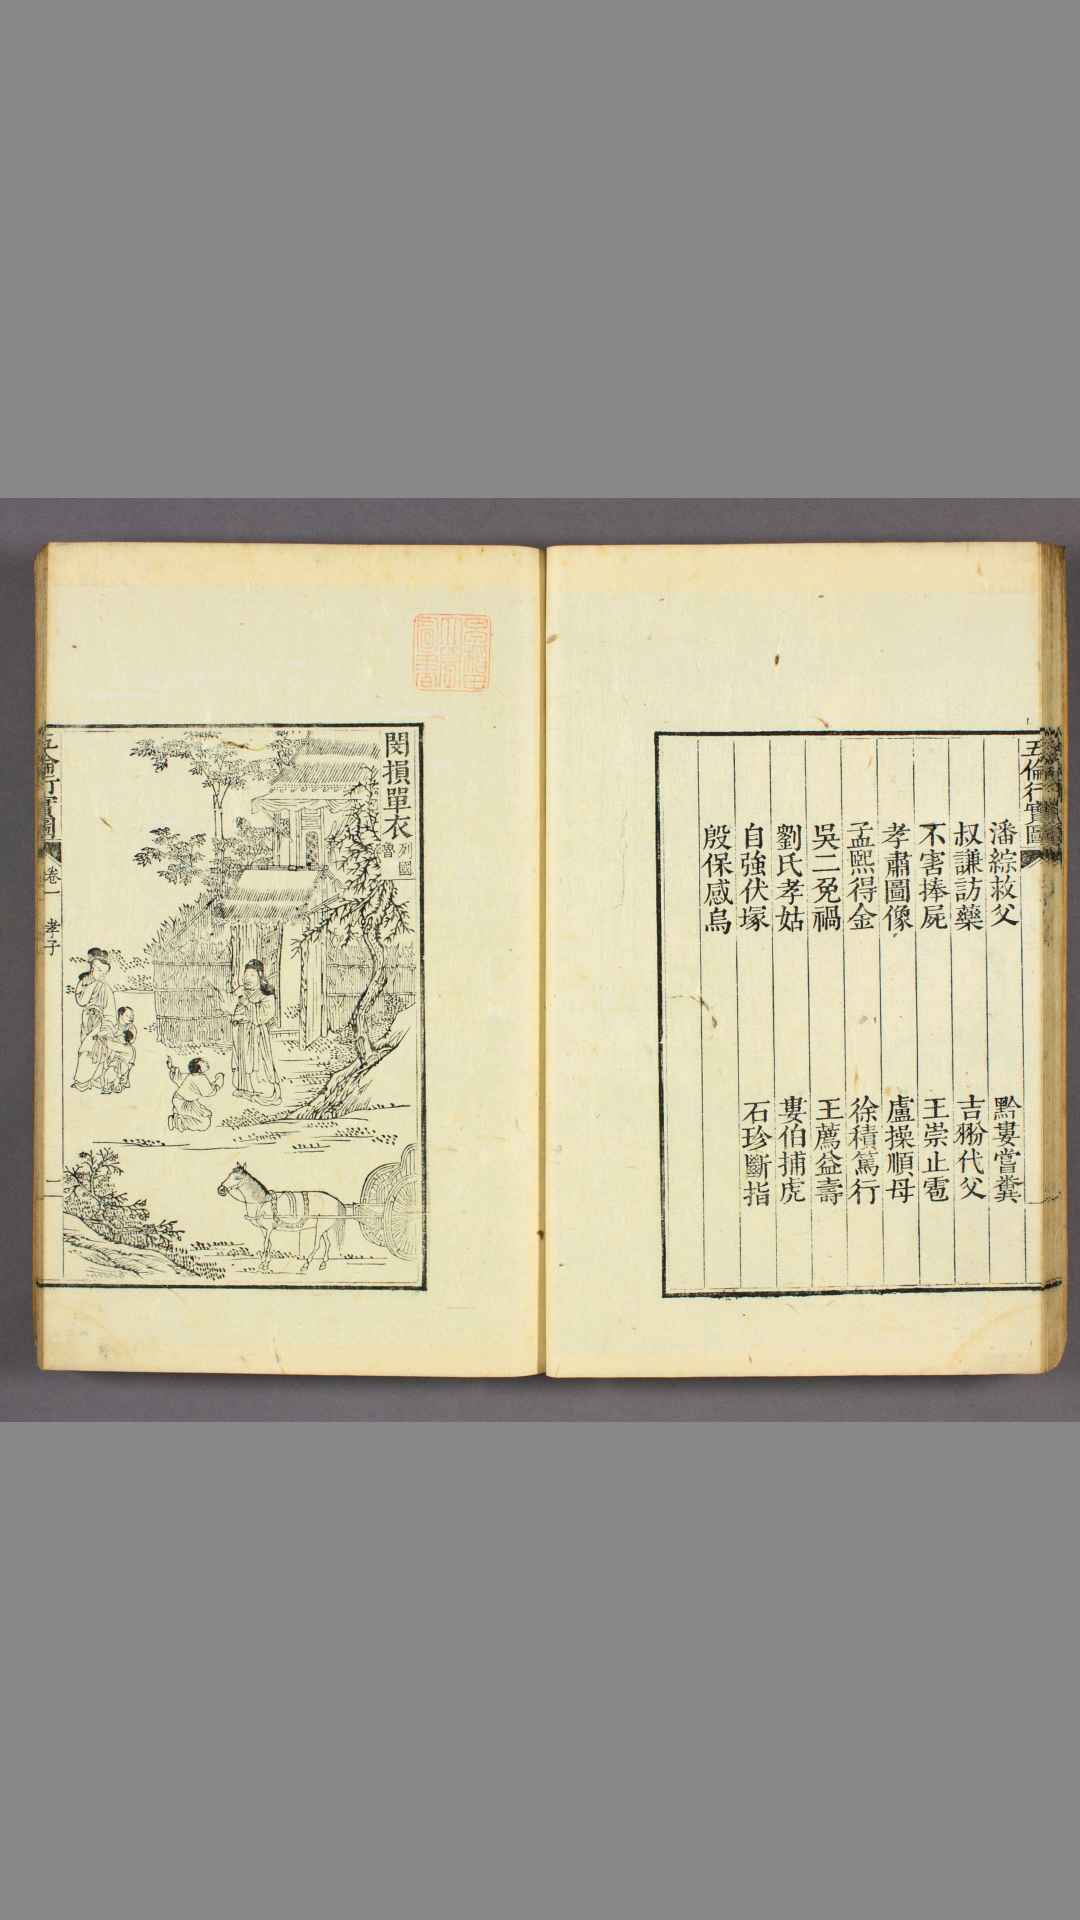 五倫行實圖
潘綜救父 黔婁嘗糞
叔謙訪藥 吉翂代父
不害捧屍 王崇止雹
孝肅圖像 盧操順母
孟熙得金 徐積篤行
吳二免禍 王薦益壽
劉氏孝姑 婁伯捕虎
自強伏塚 石珍斷指
殷保感烏
閔損單衣
列國
魯
五倫行實圖
卷一
孝子